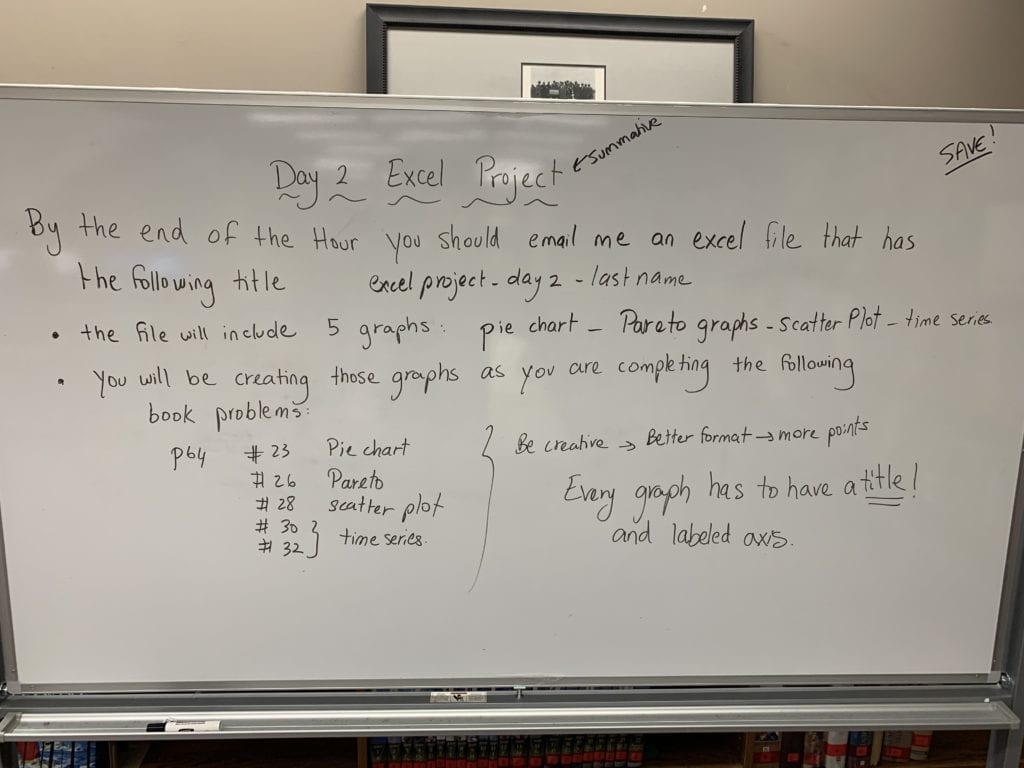 Day 2 Excel Project ← summative
SAVE!
By the end of the Hour you should email me an excel file that has
the following title excel project - day 2 - last name
• the file will include 5 graphs: pie chart - Pareto graphs - scatter Plot - time series
• You will be creating those graphs as you are completing the following
book problems:
p64 # 23 Pie chart
# 26 Pareto
# 28 scatter plot
# 30
# 32 } time series.
Be creative → Better format → more points
Every graph has to have a title!
and labeled axis.